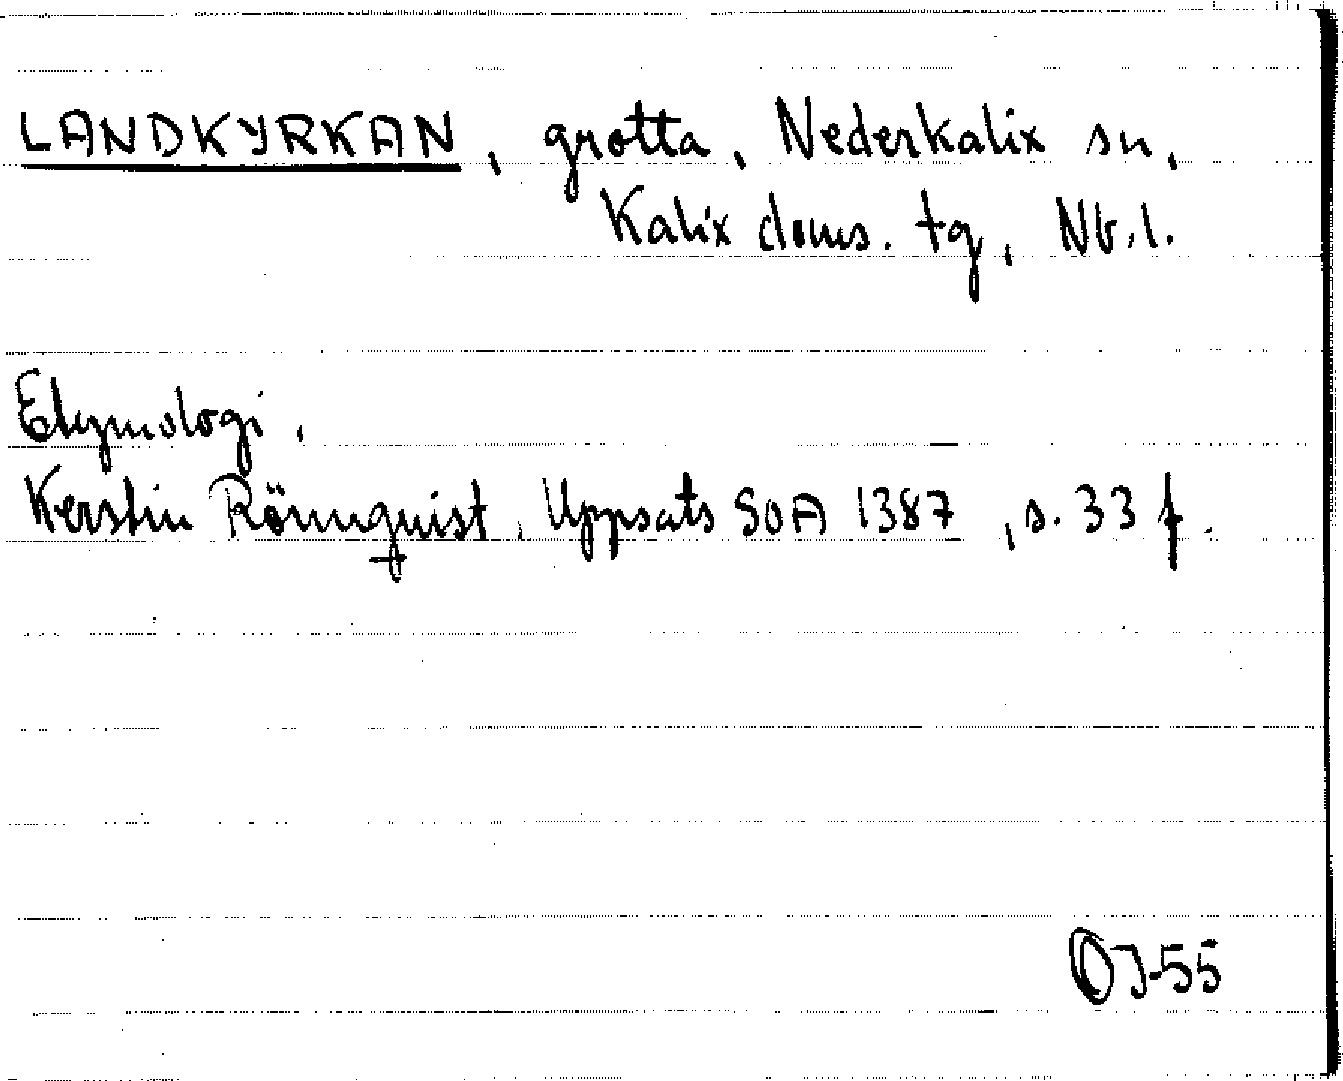 LANDKYRKAN, grotta, Nederkalix sn,
Kalix doms. tg, Nb.l.
Etymologi.
Kerstin Rönnquist, Uppsats SOA 1387, s. 33 f.
OJ-55